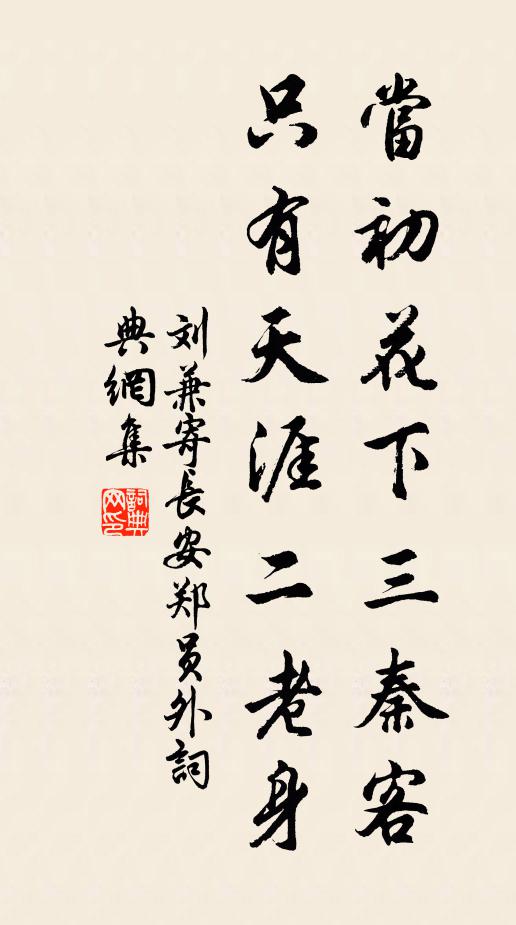 當初花下三秦客
只有天涯二老身
刘兼寄長安郑员外詞
典網集
詞典网印